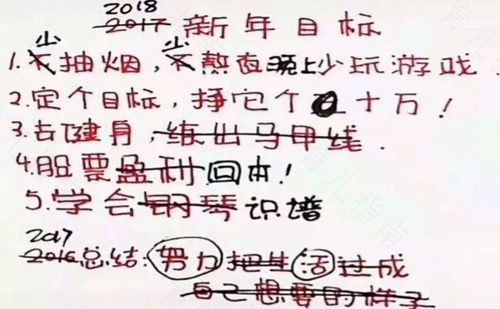 2018
2017 新年目标
少 少
1.不抽烟，不熬夜晚上少玩游戏.
2.定个目标，挣它个十万！
3.去健身，练出马甲线.
4.股票盈利回本！
5.学会钢琴识谱
2017
2016总结:努力把生活过成
自己想要的样子